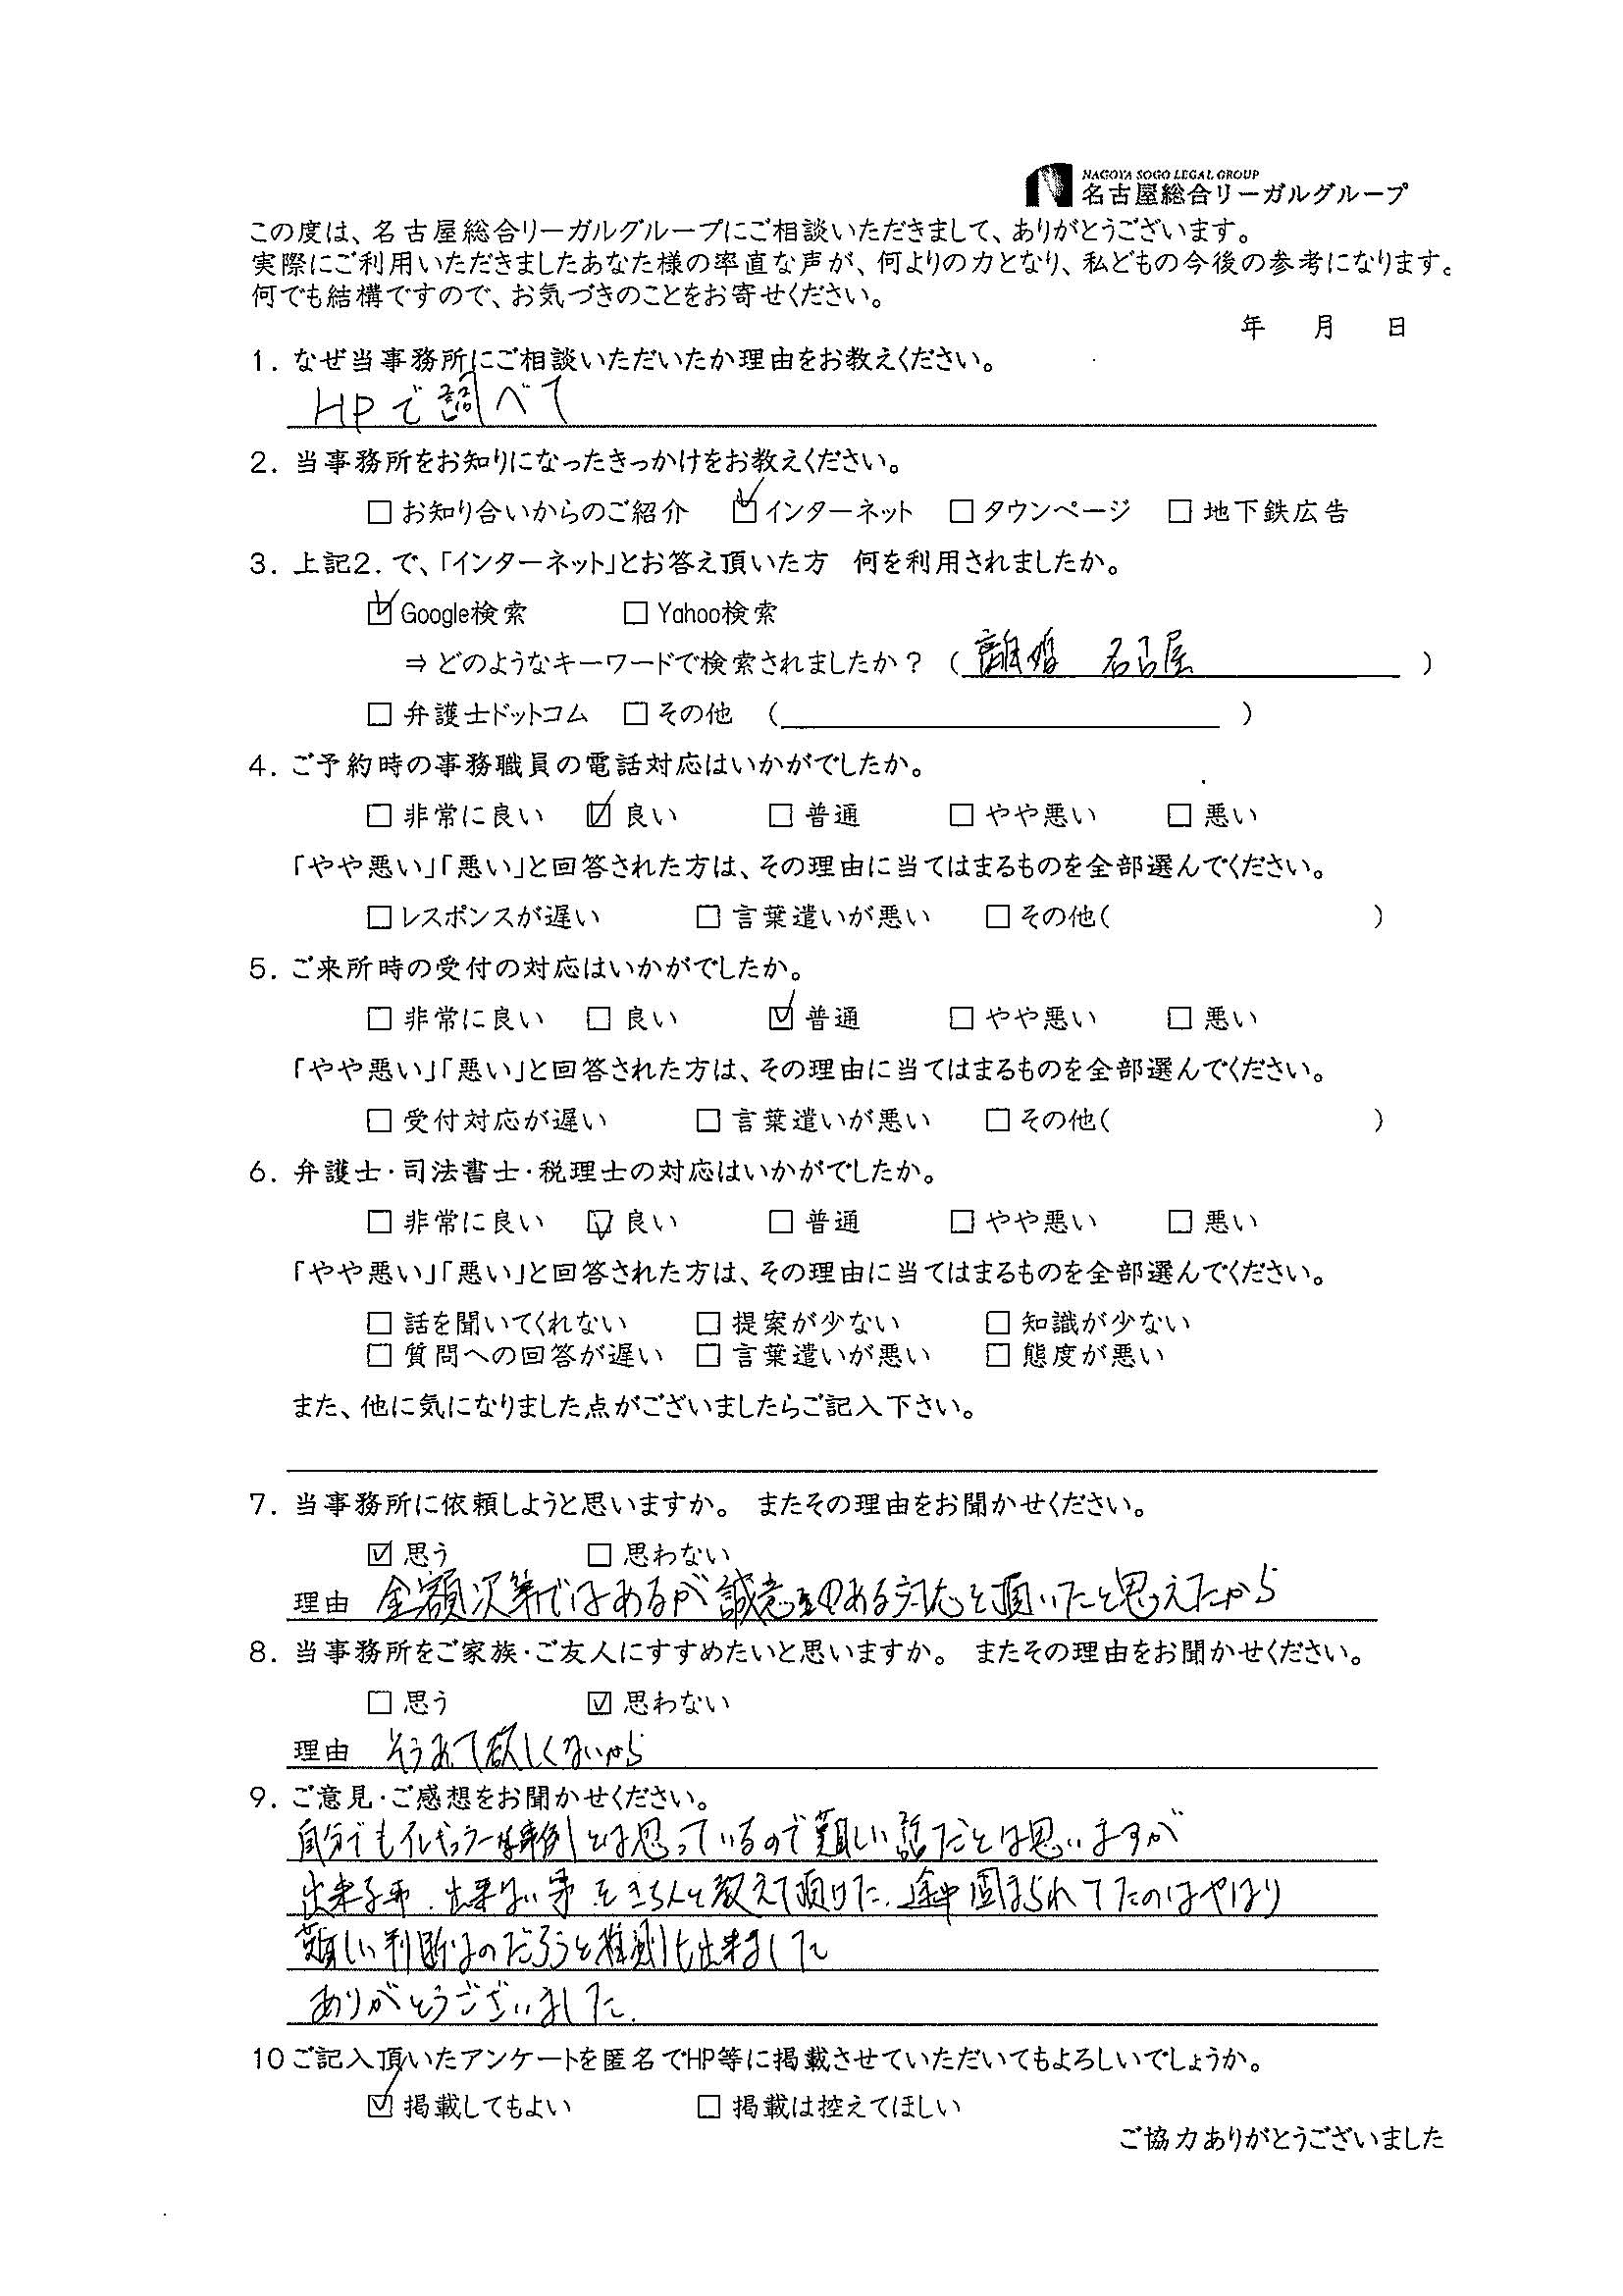 NAGOYA SOGO LEGAL GROUP
名古屋総合リーガルグループ
この度は、名古屋総合リーガルグループにご相談いただきまして、ありがとうございます。
実際にご利用いただきましたあなた様の率直な声が、何よりの力となり、私どもの今後の参考になります。
何でも結構ですので、お気づきのことをお寄せください。
年 月 日
1. なぜ当事務所にご相談いただいたか理由をお教えください。
HPで調べて
2. 当事務所をお知りになったきっかけをお教えください。
□ お知り合いからのご紹介 ☑ インターネット □ タウンページ □ 地下鉄広告
3. 上記2. で、「インターネット」とお答え頂いた方 何を利用されましたか。
☑ Google検索 □ Yahoo検索
⇒ どのようなキーワードで検索されましたか? ( 離婚 名古屋 )
□ 弁護士ドットコム □ その他 ( )
4. ご予約時の事務職員の電話対応はいかがでしたか。
□ 非常に良い ☑ 良い □ 普通 □ やや悪い □ 悪い
「やや悪い」「悪い」と回答された方は、その理由に当てはまるものを全部選んでください。
□ レスポンスが遅い □ 言葉遣いが悪い □ その他( )
5. ご来所時の受付の対応はいかがでしたか。
□ 非常に良い □ 良い ☑ 普通 □ やや悪い □ 悪い
「やや悪い」「悪い」と回答された方は、その理由に当てはまるものを全部選んでください。
□ 受付対応が遅い □ 言葉遣いが悪い □ その他( )
6. 弁護士・司法書士・税理士の対応はいかがでしたか。
□ 非常に良い ☑ 良い □ 普通 □ やや悪い □ 悪い
「やや悪い」「悪い」と回答された方は、その理由に当てはまるものを全部選んでください。
□ 話を聞いてくれない □ 提案が少ない □ 知識が少ない
□ 質問への回答が遅い □ 言葉遣いが悪い □ 態度が悪い
また、他に気になりました点がございましたらご記入下さい。
7. 当事務所に依頼しようと思いますか。 またその理由をお聞かせください。
☑ 思う □ 思わない
理由 金額次第ではあるが誠意のある対応を頂いたと思えたから
8. 当事務所をご家族・ご友人にすすめたいと思いますか。 またその理由をお聞かせください。
□ 思う ☑ 思わない
理由 そうあって欲しくないから
9. ご意見・ご感想をお聞かせください。
自分でもイレギュラーな事例とは思っているので難しい話だとは思いますが
出来る事、出来ない事をきちんと教えて頂けた。途中固まられてたのはやはり
難しい判断なのだろうと推測も出来ました
ありがとうございました.
10 ご記入頂いたアンケートを匿名でHP等に掲載させていただいてもよろしいでしょうか。
☑ 掲載してもよい □ 掲載は控えてほしい
ご協力ありがとうございました